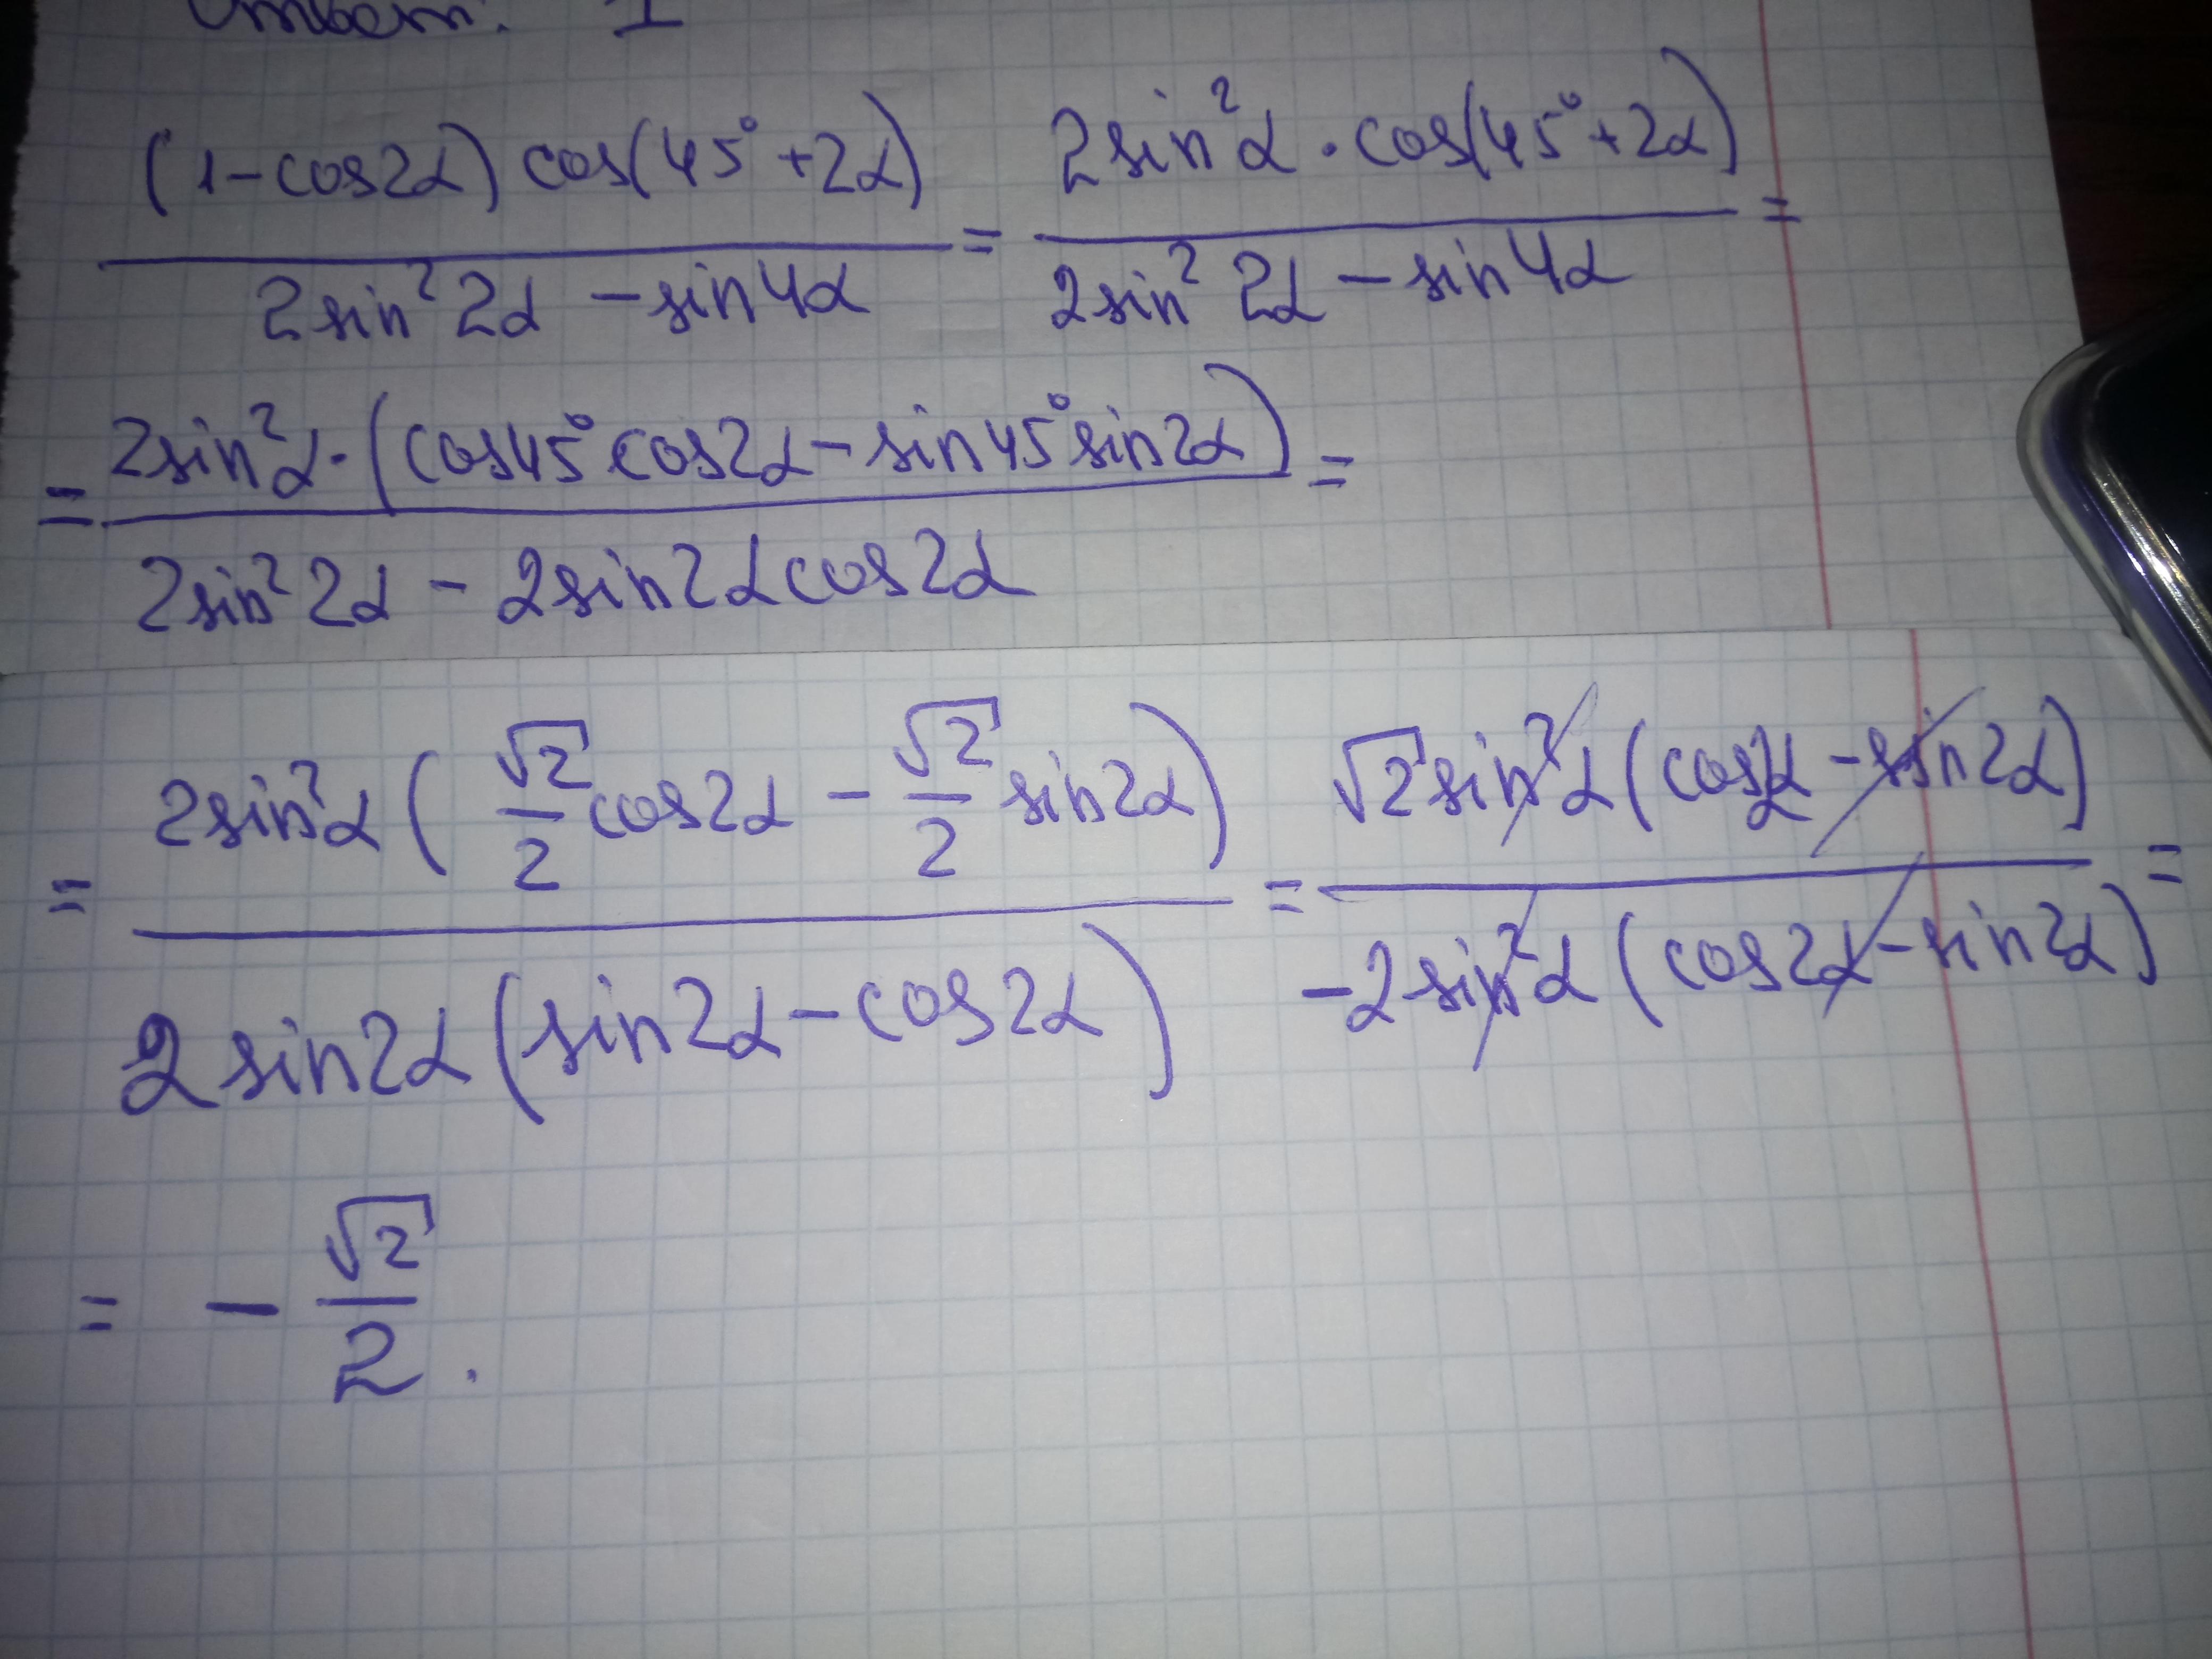 Ответ: 1
(1-cos2α) cos(45°+2α) / 2sin²2α - sin4α = 2sin²α · cos(45°+2α) / 2sin²2α - sin4α =
= 2sin²α·(cos45°cos2α - sin45°sin2α) / 2sin²2α - 2sin2αcos2α =
= 2sin²α(√2/2 cos2α - √2/2 sin2α) / 2sin2α(sin2α - cos2α) = √2sin²α(cos2α - sin2α) / -2sin²α(cos2α - sin2α) =
= - √2/2.